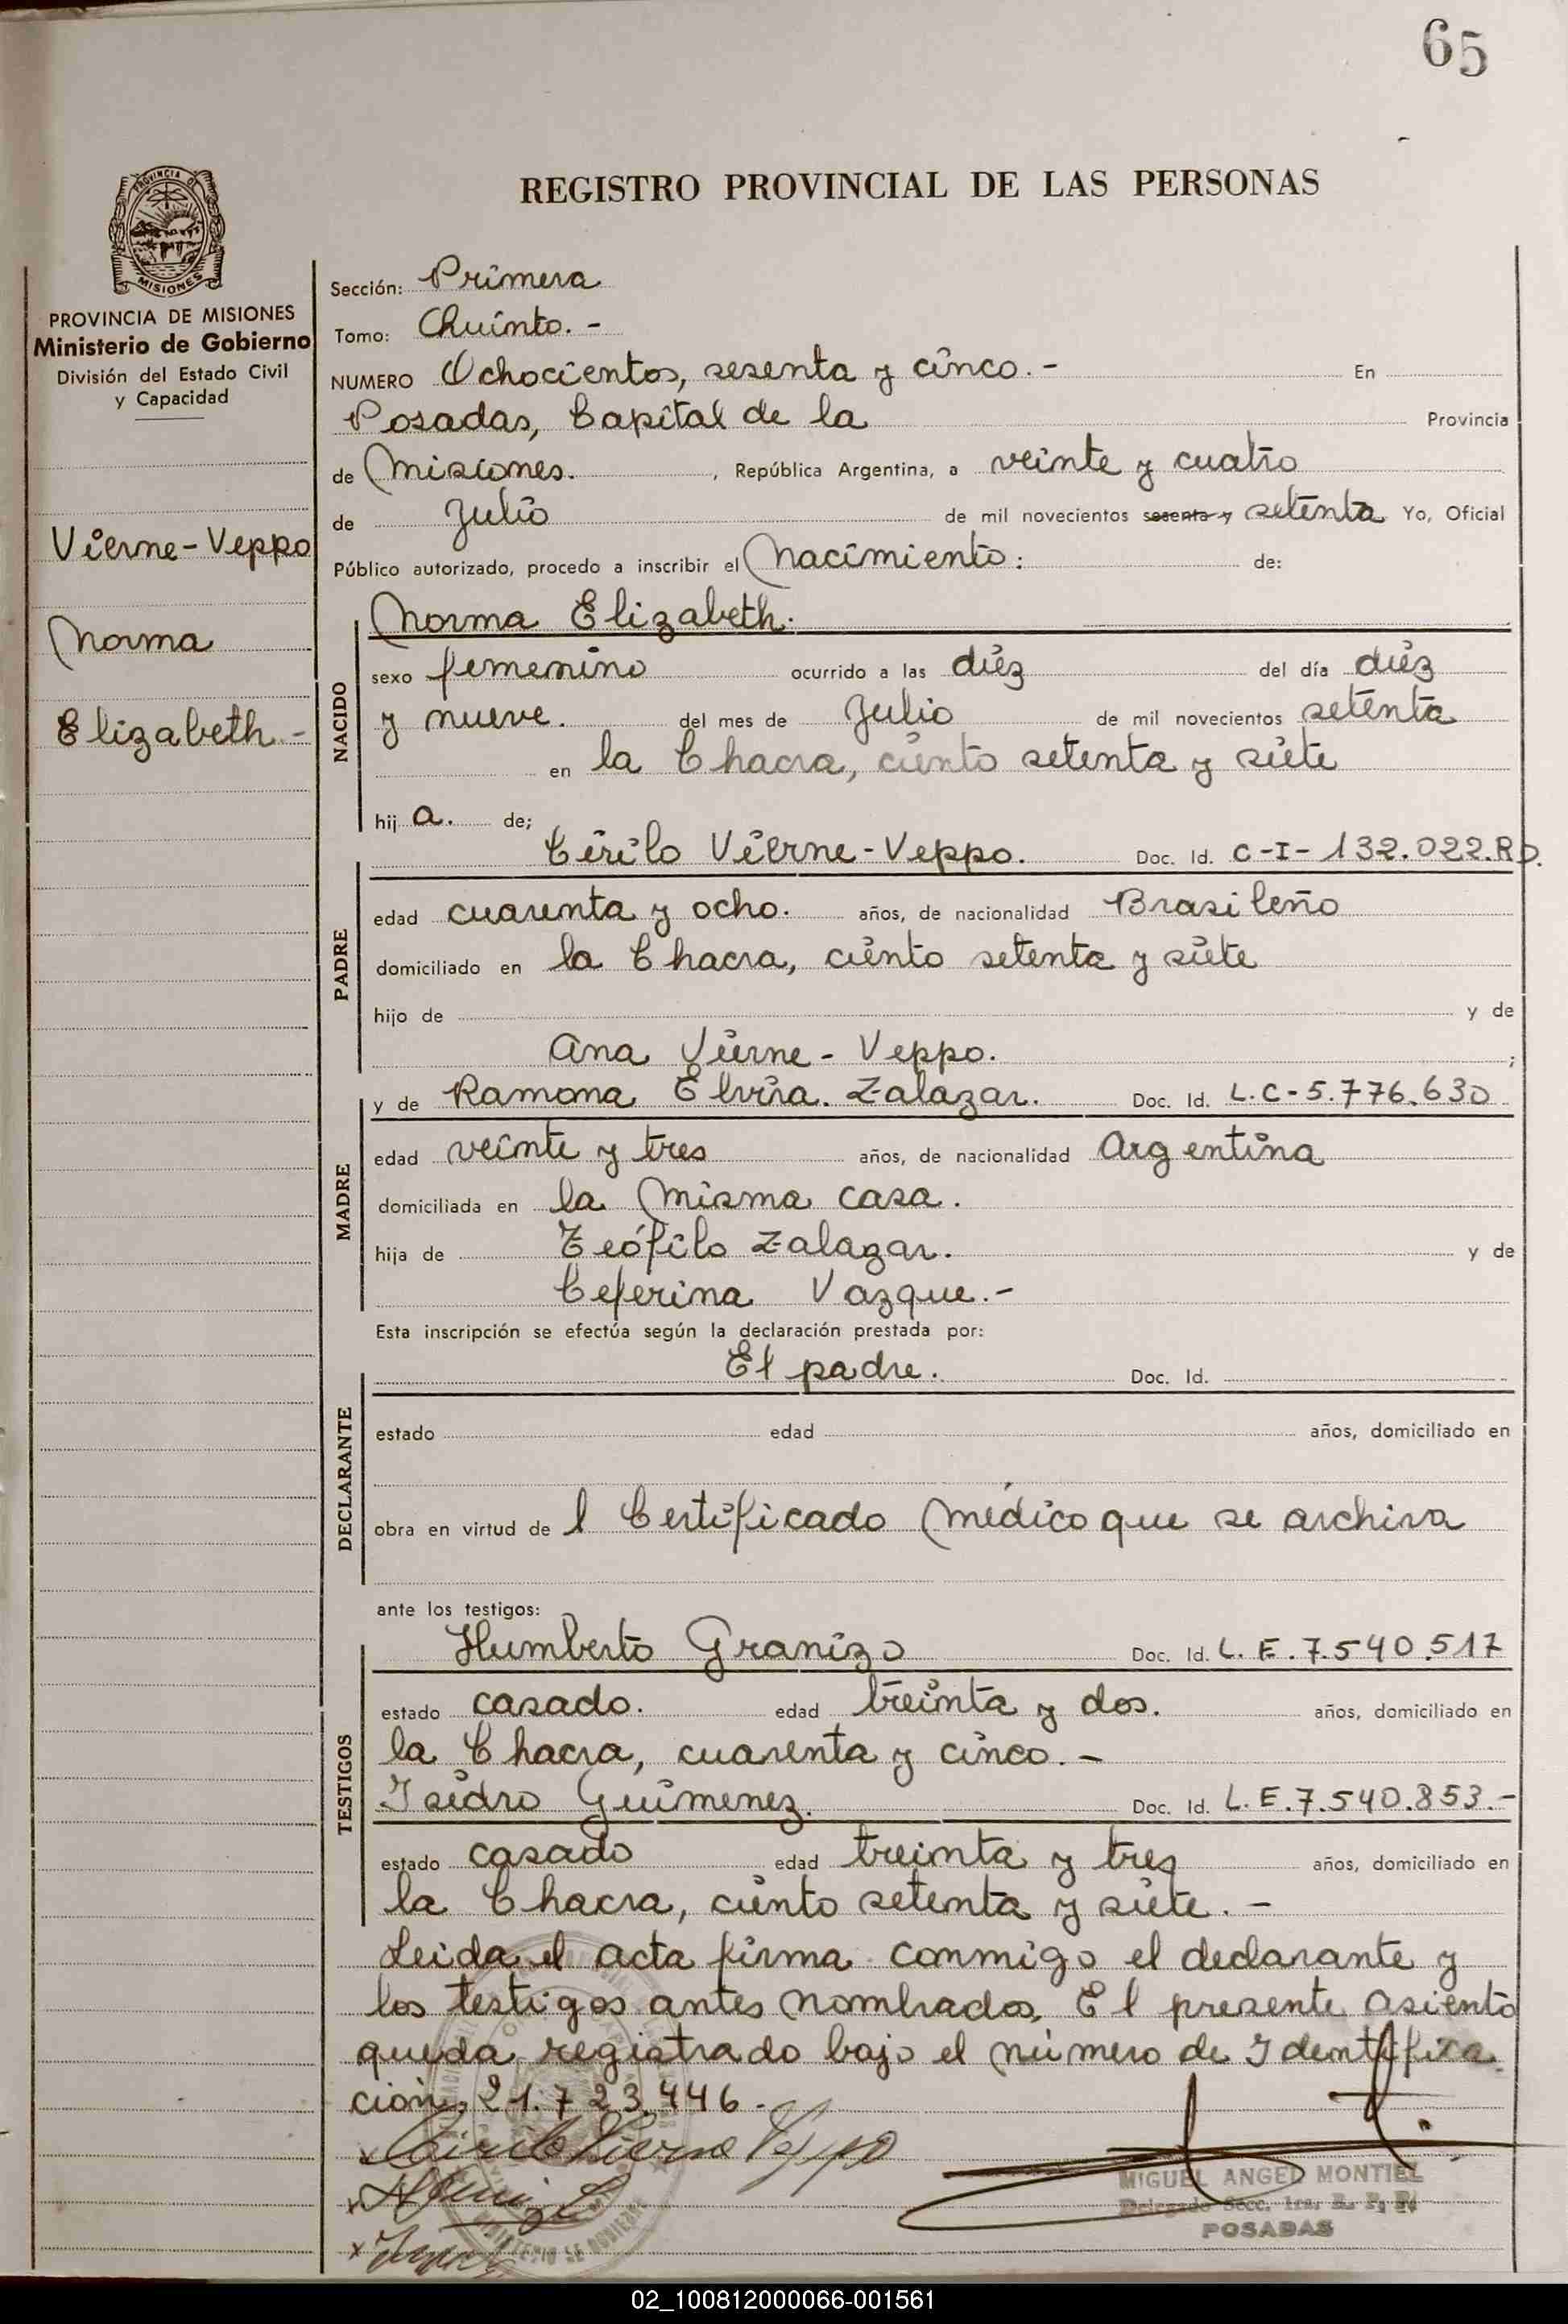 65
REGISTRO PROVINCIAL DE LAS PERSONAS
PROVINCIA DE MISIONES
Ministerio de Gobierno
División del Estado Civil
y Capacidad
Vierne-Veppo
Norma
Elizabeth.-
Sección: Primera
Tomo: Chuinto.-
NUMERO Ochocientos, sesenta y cinco.- En
Posadas, Capital de la Provincia
de Misiones. , República Argentina, a veinte y cuatro
de Julio de mil novecientos sesenta y setenta Yo, Oficial
Público autorizado, procedo a inscribir el Nacimiento: de:
Norma Elizabeth.
NACIDO
sexo femenino ocurrido a las diéz del día diéz
y nueve. del mes de Julio de mil novecientos setenta
en la Chacra, ciento setenta y siete
hij a. de;
Cirilo Vierne-Veppo. Doc. Id. C-I-132.022.RP.
PADRE
edad cuarenta y ocho. años, de nacionalidad Brasileño
domiciliado en la Chacra, ciento setenta y siete
hijo de y de
Ana Vierne-Veppo. ;
y de Ramona Elvira. Zalazar. Doc. Id. L.C-5.776.630
MADRE
edad veinte y tres años, de nacionalidad Argentina
domiciliada en la misma casa.
hija de Teófilo Zalazar. y de
Ceferina Vazque.-
Esta inscripción se efectúa según la declaración prestada por:
El padre. Doc. Id.
DECLARANTE
estado edad años, domiciliado en
obra en virtud de l Certificado médico que se archiva
ante los testigos:
Humberto Granizo Doc. Id. L.E.7.540.517
TESTIGOS
estado casado. edad treinta y dos. años, domiciliado en
la Chacra, cuarenta y cinco.-
Isidro Guimenez. Doc. Id. L.E.7.540.853.-
estado casado edad treinta y tres años, domiciliado en
la Chacra, ciento setenta y siete.-
Leida el acta firma conmigo el declarante y
los testigos antes nombrados. El presente asiento
queda registrado bajo el número de Identifica
ción, 21.723.446.-
Cirilo Vierne Veppo
MIGUEL ANGEL MONTIEL
Delegado Secc. 1ra. R. P. P.
POSADAS
02_100812000066-001561